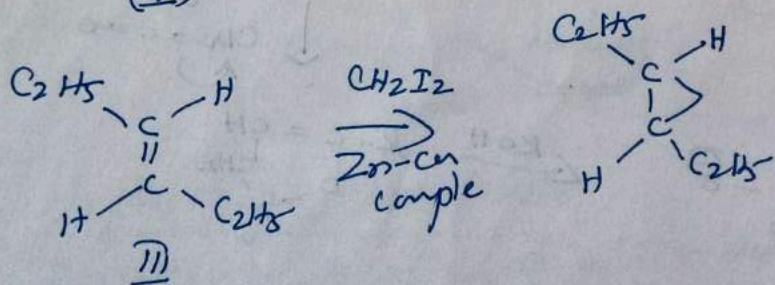 C2H5 H
C
||
C
H C2H5
III
CH2I2
Zn-Cu
couple
C2H5 H
C
C
H C2H5